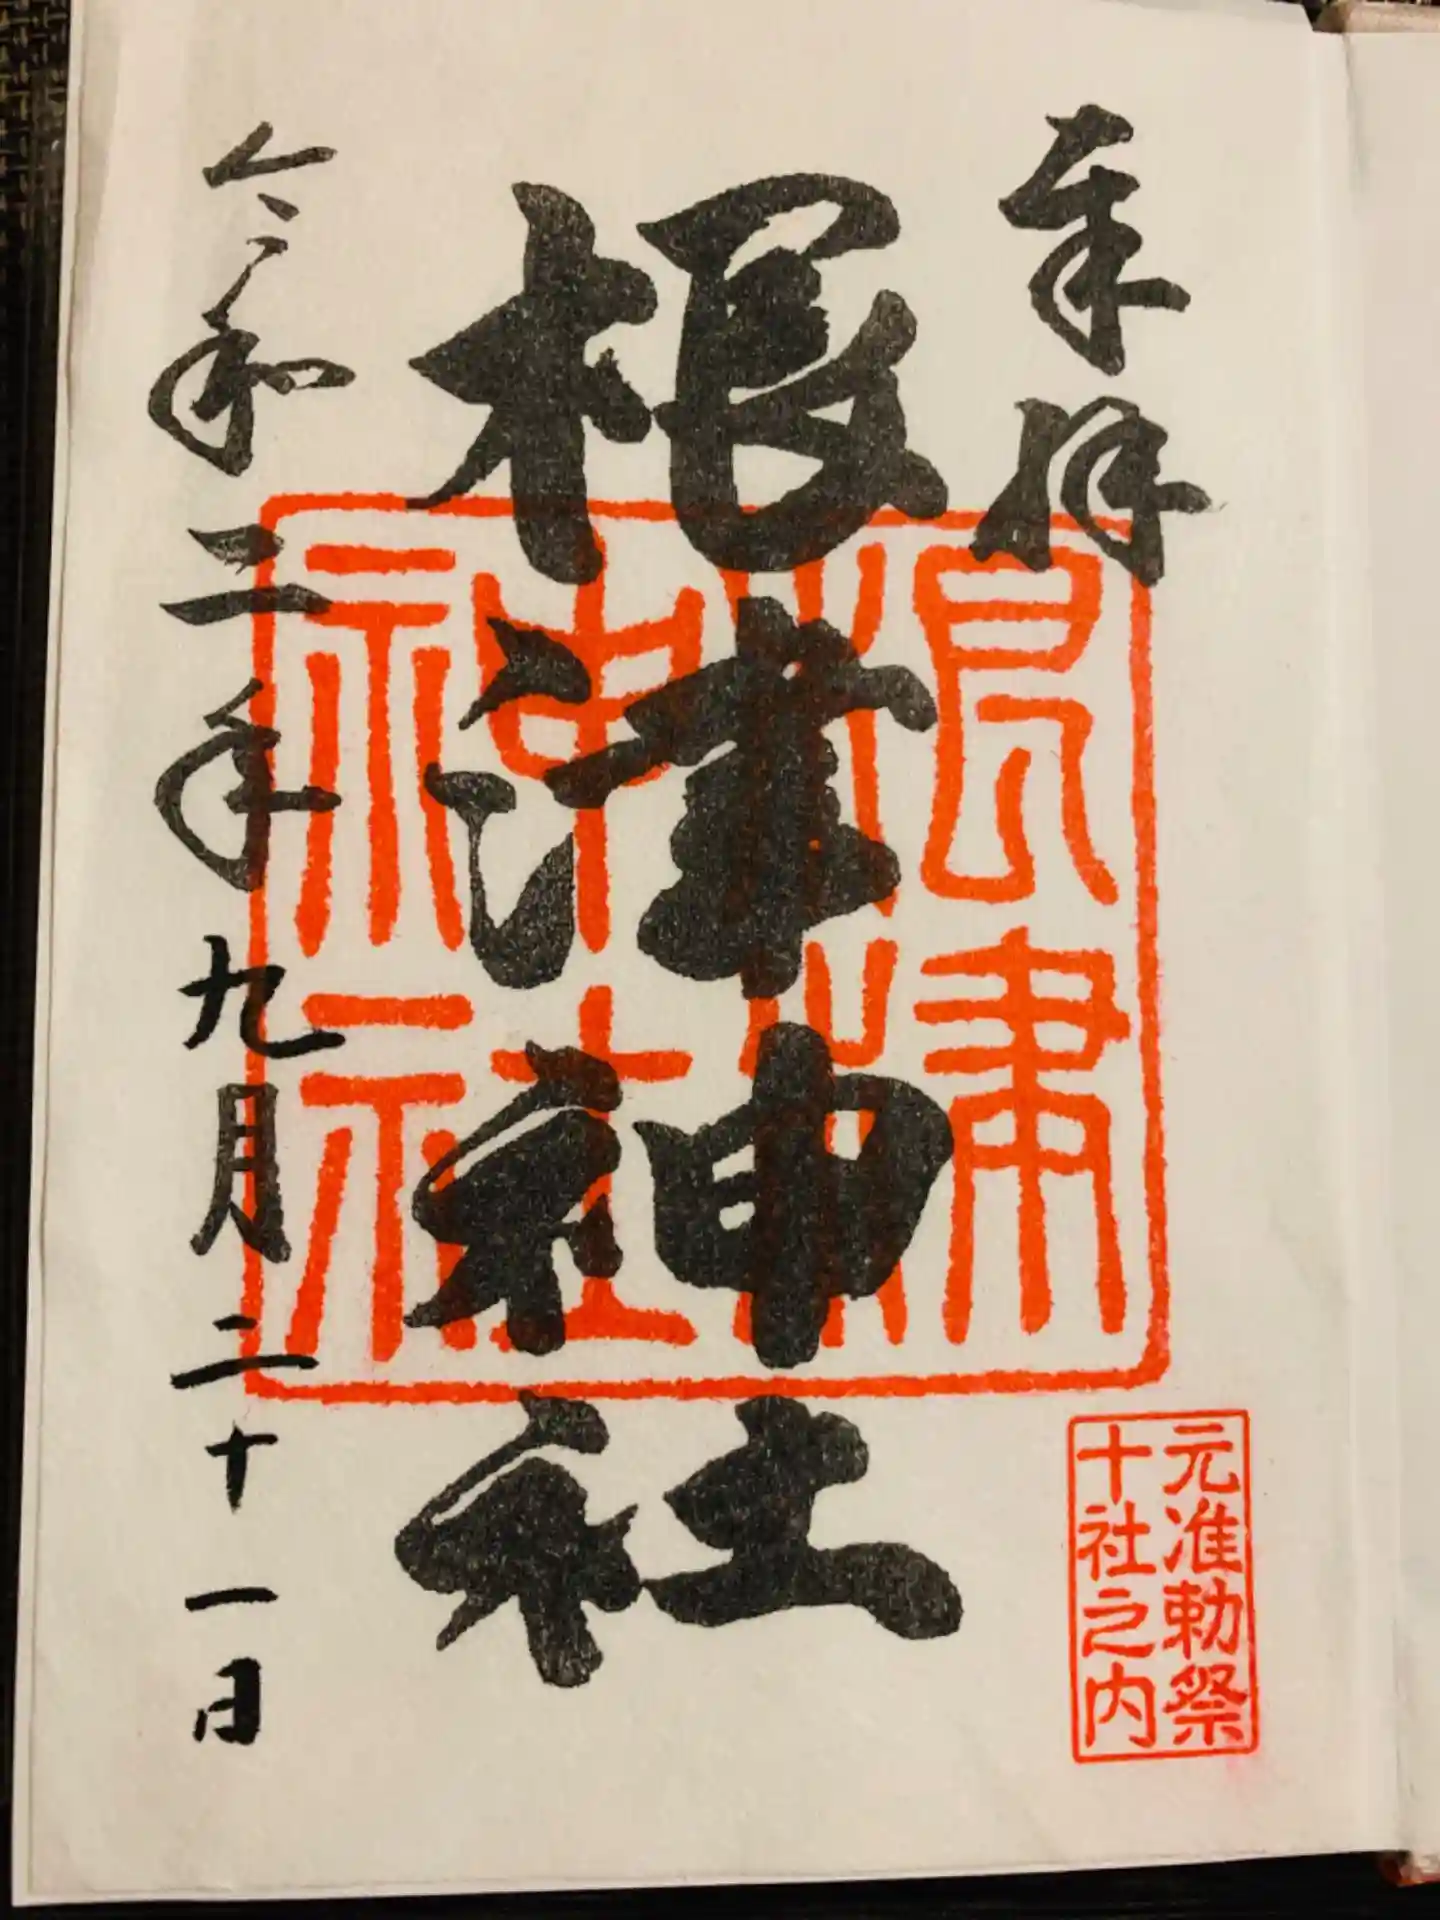 奉拝
根津神社
令和三年九月二十一日
根津
神社
元准勅祭
十社之内